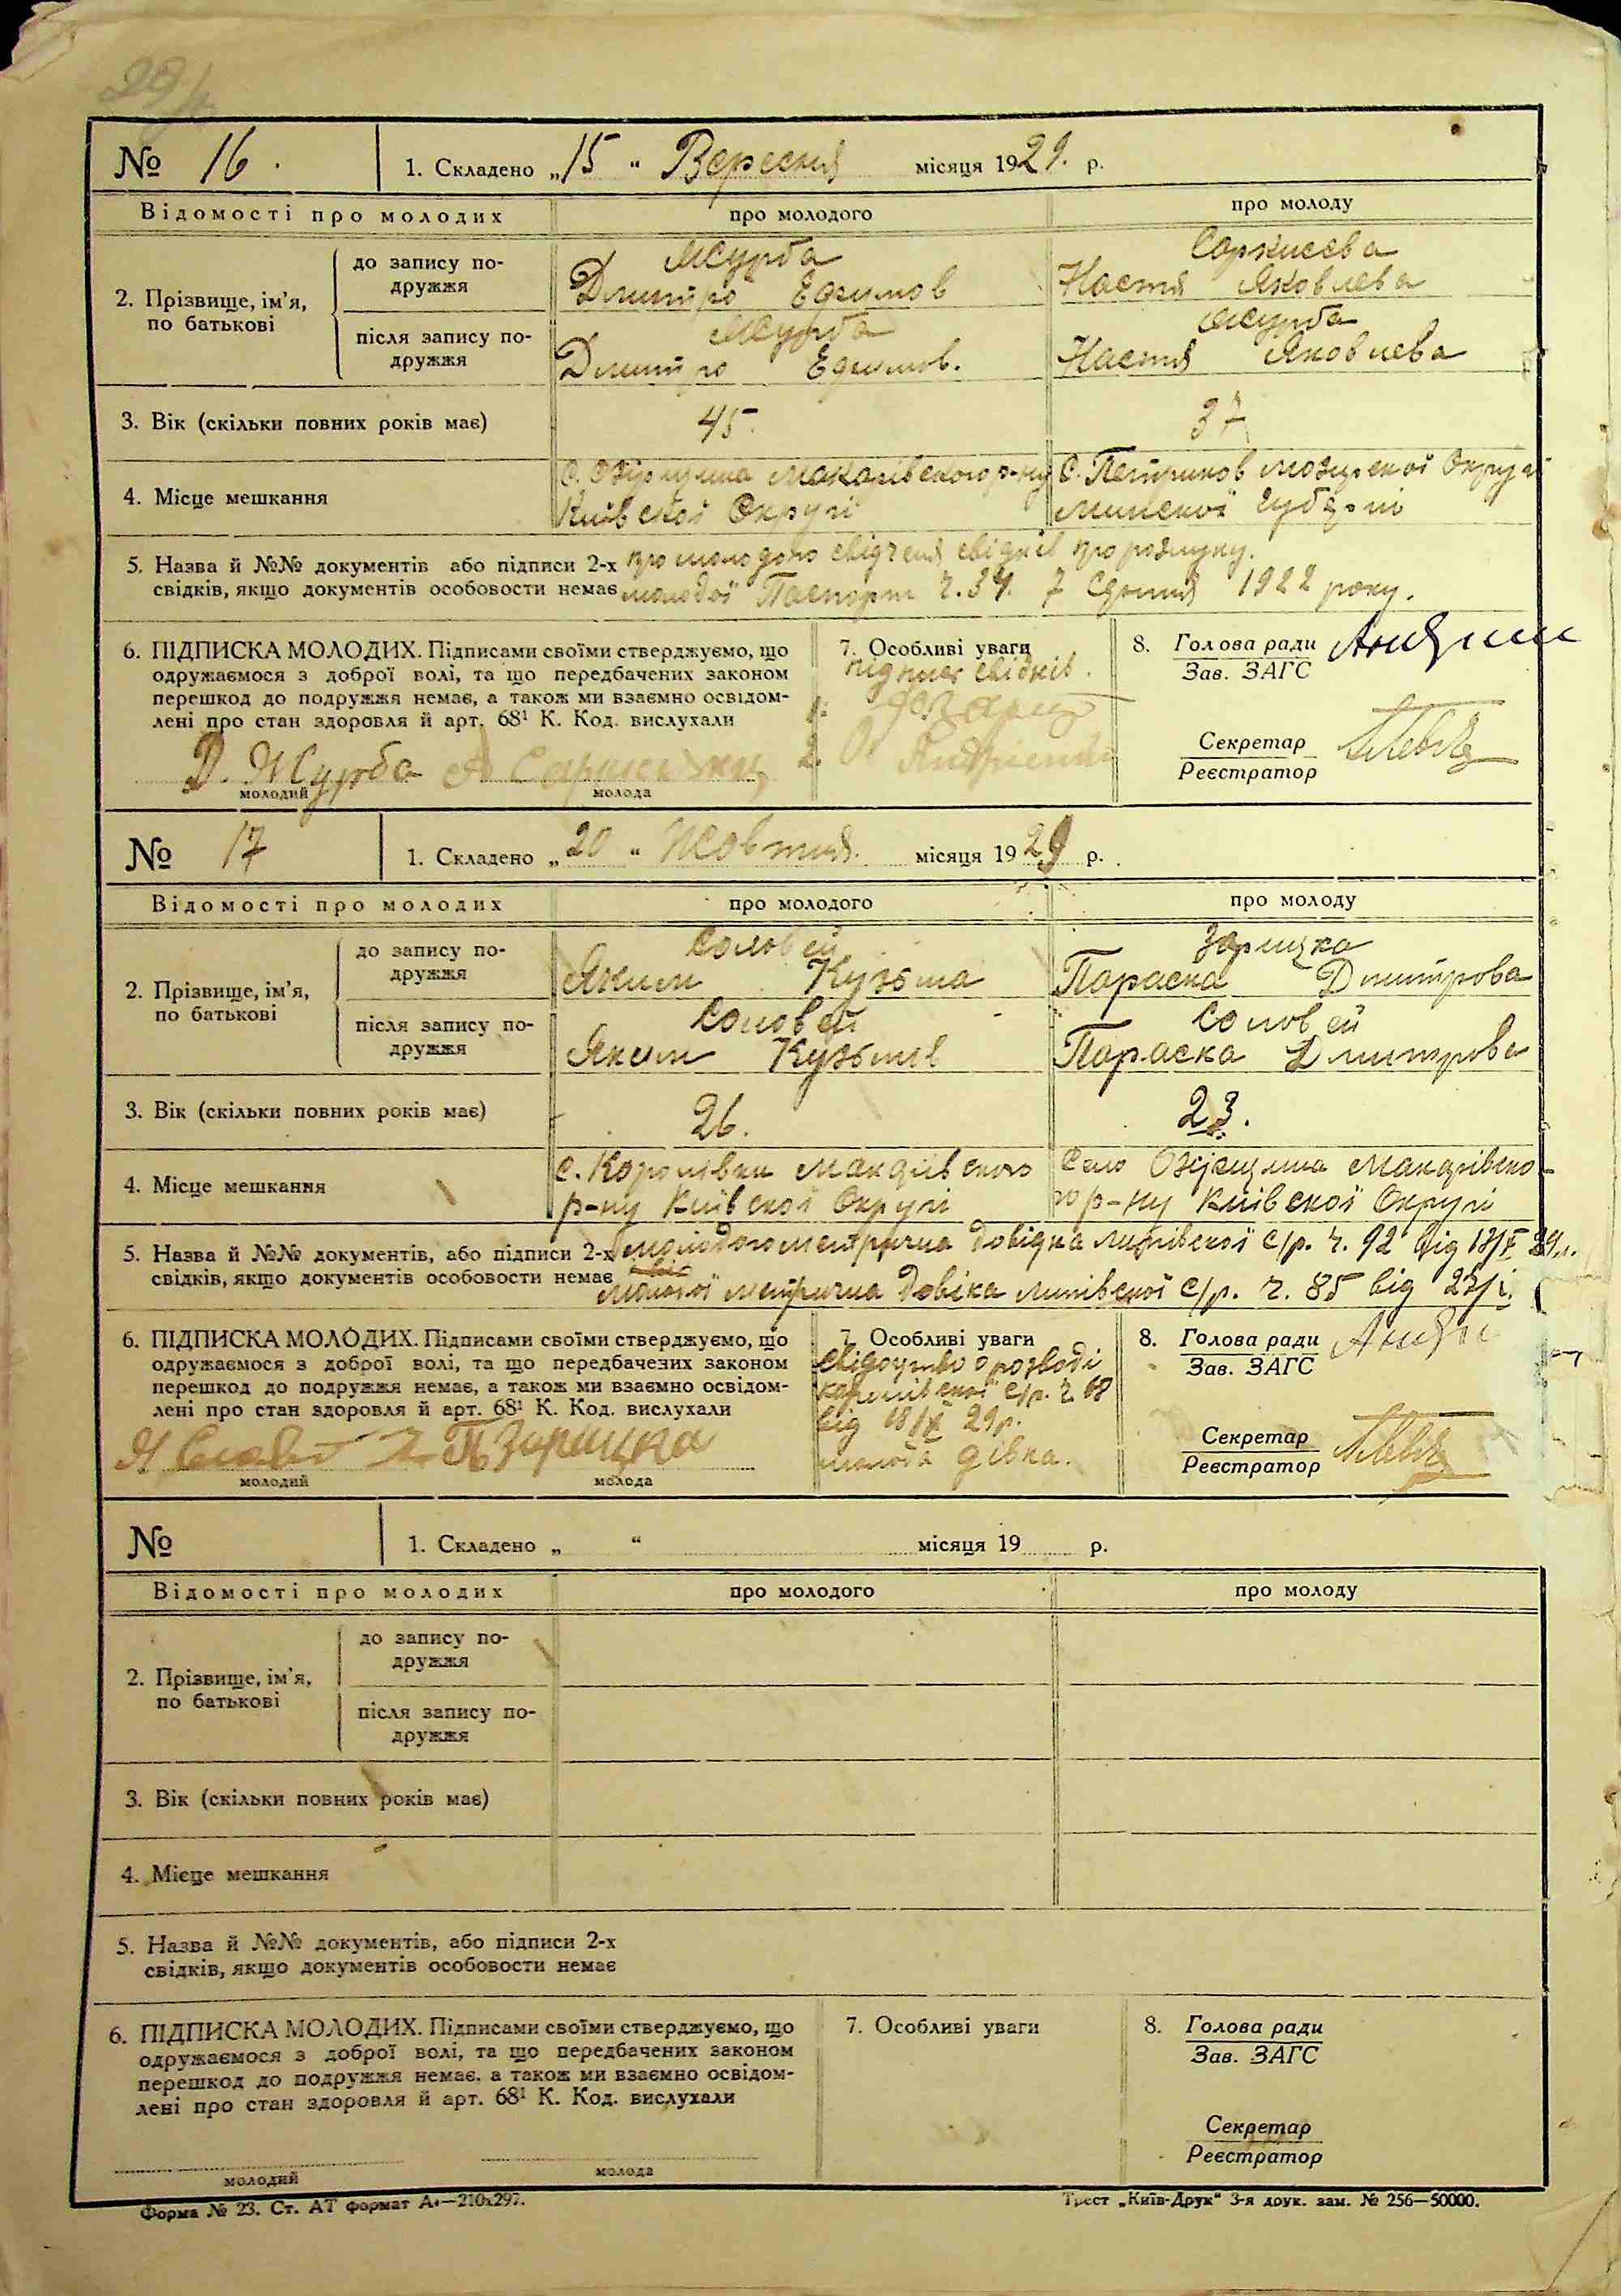 № 16. 1. Складено „15“ Вересня місяця 1929. р.
Відомості про молодих про молодого про молоду
2. Прізвище, ім’я, по батькові
до запису подружжя
Журба
Дмитро Ефимов
Настя Яковлева
після запису подружжя
Журба
Дмитро Ефимов.
Журба
Настя Яковлева
3. Вік (скільки повних років має) 45. 37
4. Місце мешкання
Макарівского р-ну
Київскої Округи
С. Петриков Мозирскої Округи
Минскої Губерні
5. Назва й №№ документів або підписи 2-х про молодого свідченя свідків про розлуку.
свідків, якщо документів особовости немає молодої Паспорт ч. 34. 7 Сероння 1922 року.
6. ПІДПИСКА МОЛОДИХ. Підписами своїми стверджуємо, що
одружаємося з доброї волі, та що передбачених законом
перешкод до подружжя немає, а також ми взаємно освідом-
лені про стан здоровля й арт. 68¹ К. Код. вислухали
Д. Журба
молодий молода
7. Особливі уваги
підпис свідків.
1.
2.
8. Голова ради
Зав. ЗАГС
Секретар
Реєстратор
№ 17 1. Складено „20“ Жовтня. місяця 1929 р.
Відомості про молодих про молодого про молоду
2. Прізвище, ім’я, по батькові
до запису подружжя
Соловей
Яким Кузьма
Зарицка
Параска Дмитрова
після запису подружжя
Соловей
Яким Кузьмів
Соловей
Параска Дмитрова
3. Вік (скільки повних років має) 26. 23.
4. Місце мешкання
с. Королівки Макарівского
р-ну Київскої Округи
Село Макарівско-
го р-ну Київскої Округи
5. Назва й №№ документів, або підписи 2-х молодого метрична довідка липівскої с/р. ч. 92 від
свідків, якщо документів особовости немає молодої метрична довіка липівскої с/р. ч. 85 від
6. ПІДПИСКА МОЛОДИХ. Підписами своїми стверджуємо, що
одружаємося з доброї волі, та що передбачених законом
перешкод до подружжя немає, а також ми взаємно освідом-
лені про стан здоровля й арт. 68¹ К. Код. вислухали
П Зарицка
молодий молода
7. Особливі уваги
о розводі
с/р. ч 68
від 18/ 29р.
молода дівка.
8. Голова ради
Зав. ЗАГС
Секретар
Реєстратор
№ 1. Складено „ “ місяця 19 р.
Відомості про молодих про молодого про молоду
2. Прізвище, ім’я,
по батькові
до запису по-
дружжя
після запису по-
дружжя
3. Вік (скільки повних років має)
4. Місце мешкання
5. Назва й №№ документів, або підписи 2-х
свідків, якщо документів особовости немає
6. ПІДПИСКА МОЛОДИХ. Підписами своїми стверджуємо, що
одружаємося з доброї волі, та що передбачених законом
перешкод до подружжя немає, а також ми взаємно освідом-
лені про стан здоровля й арт. 68¹ К. Код. вислухали
молодий молода
7. Особливі уваги
8. Голова ради
Зав. ЗАГС
Секретар
Реєстратор
Форма № 23. Ст. АТ формат А₄—210x297.
Трест „Київ-Друк“ 3-я друк. зам. № 256—50000.